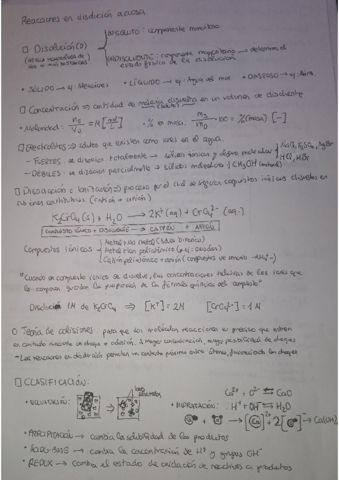 Reacciones en disolución acuosa
① Disolución (D)
ABSOLUTO: componente minoritario
DISOLVENTE: componente mayoritario → determina el
estado físico de la disolución
• SÓLIDO → ej: Aleaciones • LÍQUIDO → ej: Agua del mar • GASEOSO → ej: Aire
□ Concentración → cantidad de disuelta en un volumen de disolvente
• Molaridad: = M [mol/L] • % en masa: · 100 = % (masa) [-]
□ Electrolitos → solutos que existen como iones en el agua
- FUERTES → se disocian totalmente → sólidos iónicos y ácidos moleculares
HCl, HBr
- DÉBILES → se disocian parcialmente → sólidos moleculares CH₃OH
□ Disociación → proceso por el cual se separan compuestos iónicos disueltos en
sus iones constitutivos (catión + anión)
K₂CrO₄ (s) + H₂O → 2K⁺ (aq) + CrO₄²⁻ (aq)
COMPUESTO IÓNICO + DISOLVENTE → CATIÓN + ANIÓN
Compuestos iónicos
Metal + No metal (Sales binarias)
Metal + ion poliatómico
Catión poliatómico + anión (compuestos de amonio -NH₄⁺-)
"Cuando un compuesto iónico se disuelve, las concentraciones individuales de los iones que
lo componen guardan la proporción de la fórmula química del compuesto"
Disolución 1M de K₂CrO₄ ⇒ [K⁺] = 2M [CrO₄²⁻] = 1M
□ Teoría de colisiones para que las moléculas reaccionen es preciso que entren
en contacto mediante un choque o colisión. A mayor concentración, mayor posibilidad de choques
- Las reacciones en disolución permiten un contacto próximo entre átomos, favoreciendo los choques
□ CLASIFICACIÓN:
Ca²⁺ + O²⁻ ⇆ CaO
• HIDRATACIÓN: H⁺ + OH⁻ ⇆ H₂O
• PRECIPITACIÓN → cambia la solubilidad de los productos
• ÁCIDO-BASE → cambia la concentración de H⁺ y grupos OH⁻
• REDOX → cambia el estado de oxidación de reactivos a productos